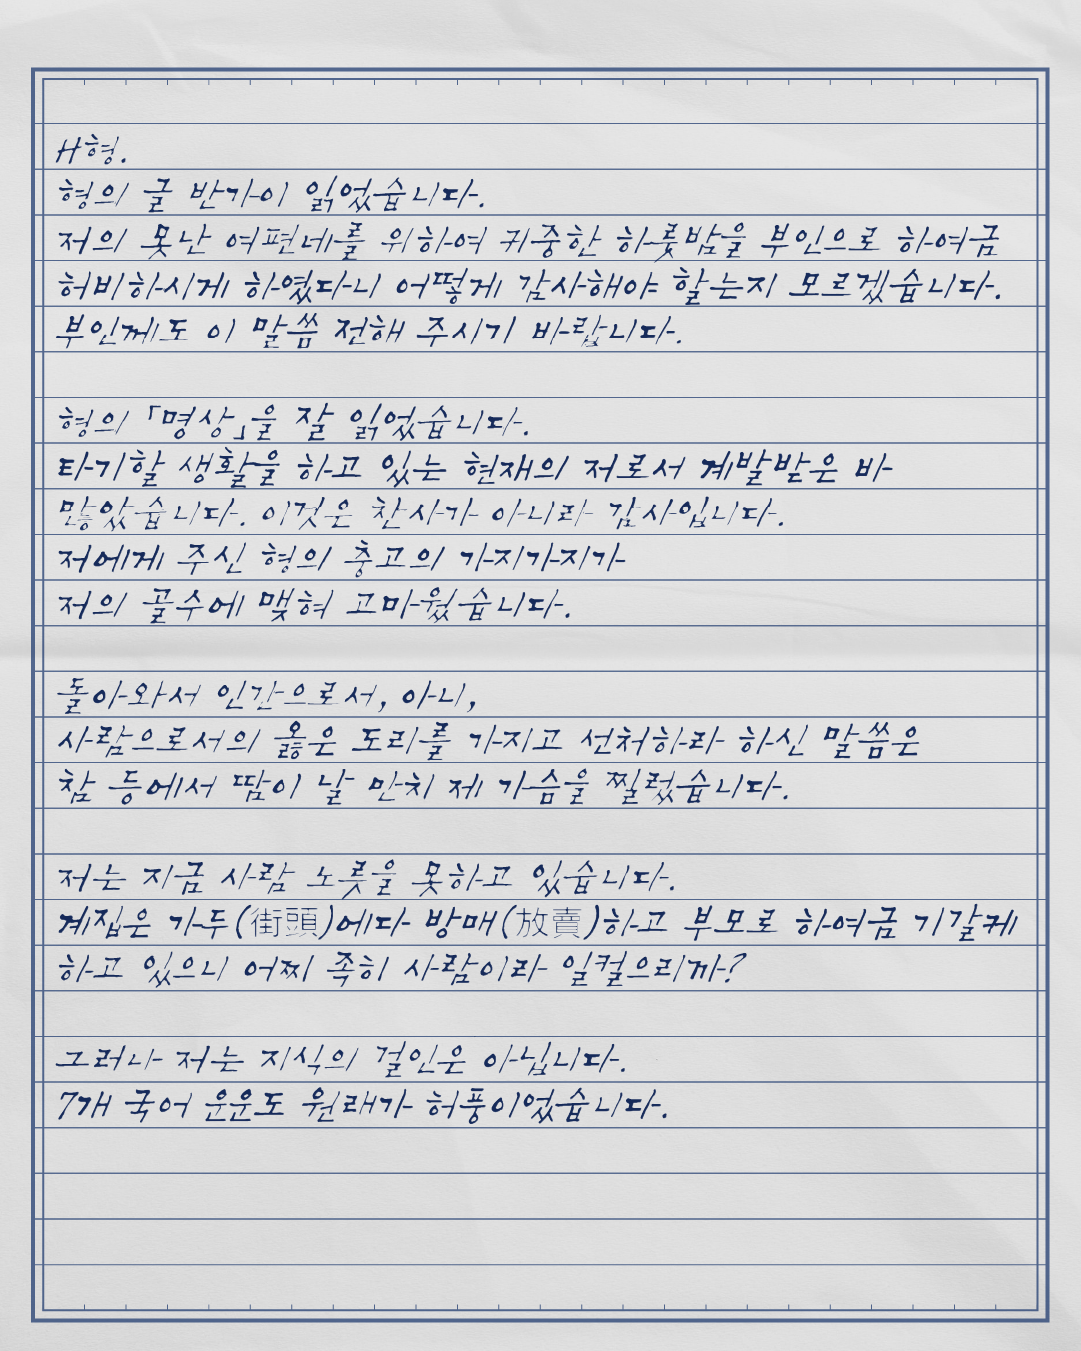 H형.
형의 글 반가이 읽었습니다.
저의 못난 여편네를 위하여 귀중한 하룻밤을 부인으로 하여금
허비하시게 하였다니 어떻게 감사해야 할는지 모르겠습니다.
부인께도 이 말씀 전해 주시기 바랍니다.
형의 「명상」을 잘 읽었습니다.
타기할 생활을 하고 있는 현재의 저로서 계발받은 바
많았습니다. 이것은 찬사가 아니라 감사입니다.
저에게 주신 형의 충고의 가지가지가
저의 골수에 맺혀 고마웠습니다.
돌아와서 인간으로서, 아니,
사람으로서의 옳은 도리를 가지고 선처하라 하신 말씀은
참 등에서 땀이 날 만치 제 가슴을 찔렀습니다.
저는 지금 사람 노릇을 못하고 있습니다.
계집은 가두(街頭)에다 방매(放賣)하고 부모로 하여금 기갈케
하고 있으니 어찌 족히 사람이라 일컬으리까?
그러나 저는 지식의 걸인은 아닙니다.
7개 국어 운운도 원래가 허풍이었습니다.